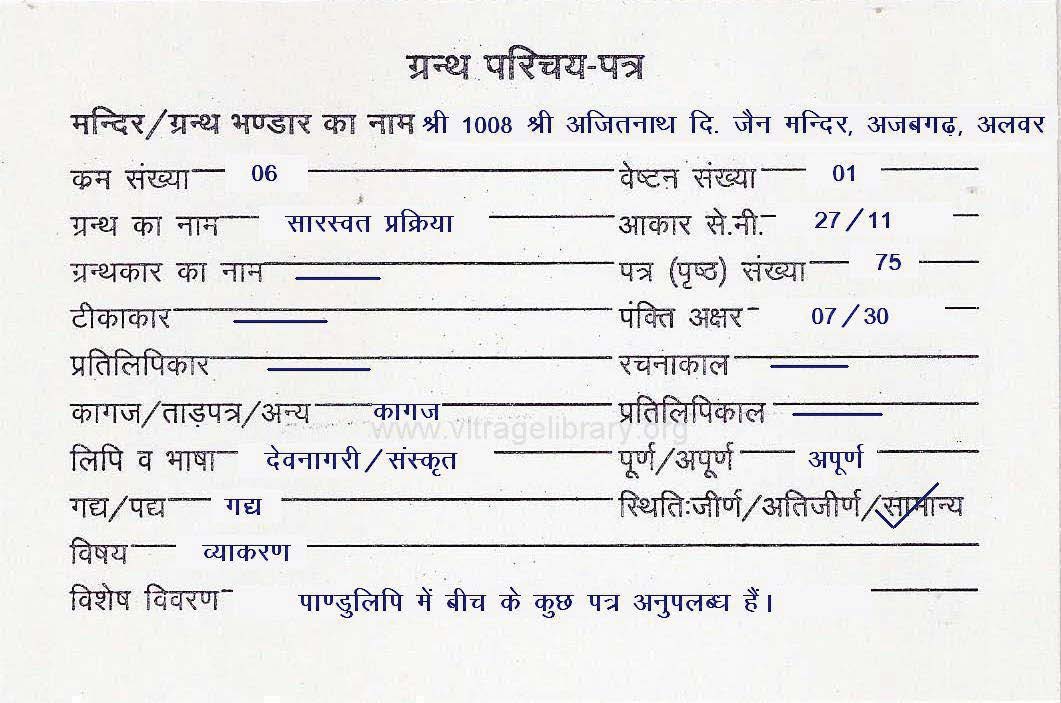 ग्रन्थ परिचय-पत्र
मन्दिर/ग्रन्थ भण्डार का नाम श्री 1008 श्री अजितनाथ दि. जैन मन्दिर, अजबगढ़, अलवर
कम संख्या 06 वेष्टन संख्या 01
ग्रन्थ का नाम सारस्वत प्रक्रिया आकार से.मी. 27/11
ग्रन्थकार का नाम पत्र (पृष्ठ) संख्या 75
टीकाकार पंक्ति अक्षर 07/30
प्रतिलिपिकार रचनाकाल
कागज/ताड़पत्र/अन्य कागज प्रतिलिपिकाल
www.vitragelibrary.org
लिपि व भाषा देवनागरी/संस्कृत पूर्ण/अपूर्ण अपूर्ण
गद्य/पद्य गद्य स्थितिःजीर्ण/अतिजीर्ण/सामान्य
विषय व्याकरण
विशेष विवरण पाण्डुलिपि में बीच के कुछ पत्र अनुपलब्ध हैं।